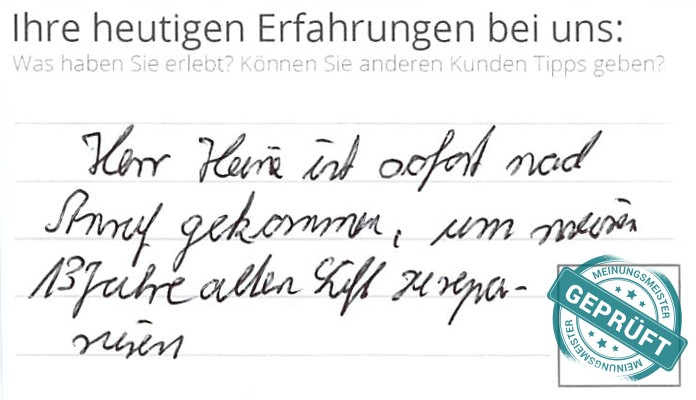 Ihre heutigen Erfahrungen bei uns:
Was haben Sie erlebt? Können Sie anderen Kunden Tipps geben?
Herr Heine ist sofort nach
Anruf gekommen, um meinen
13 Jahre alten Lift zu repa-
rieren
MEINUNGSMEISTER
GEPRÜFT
MEINUNGSMEISTER